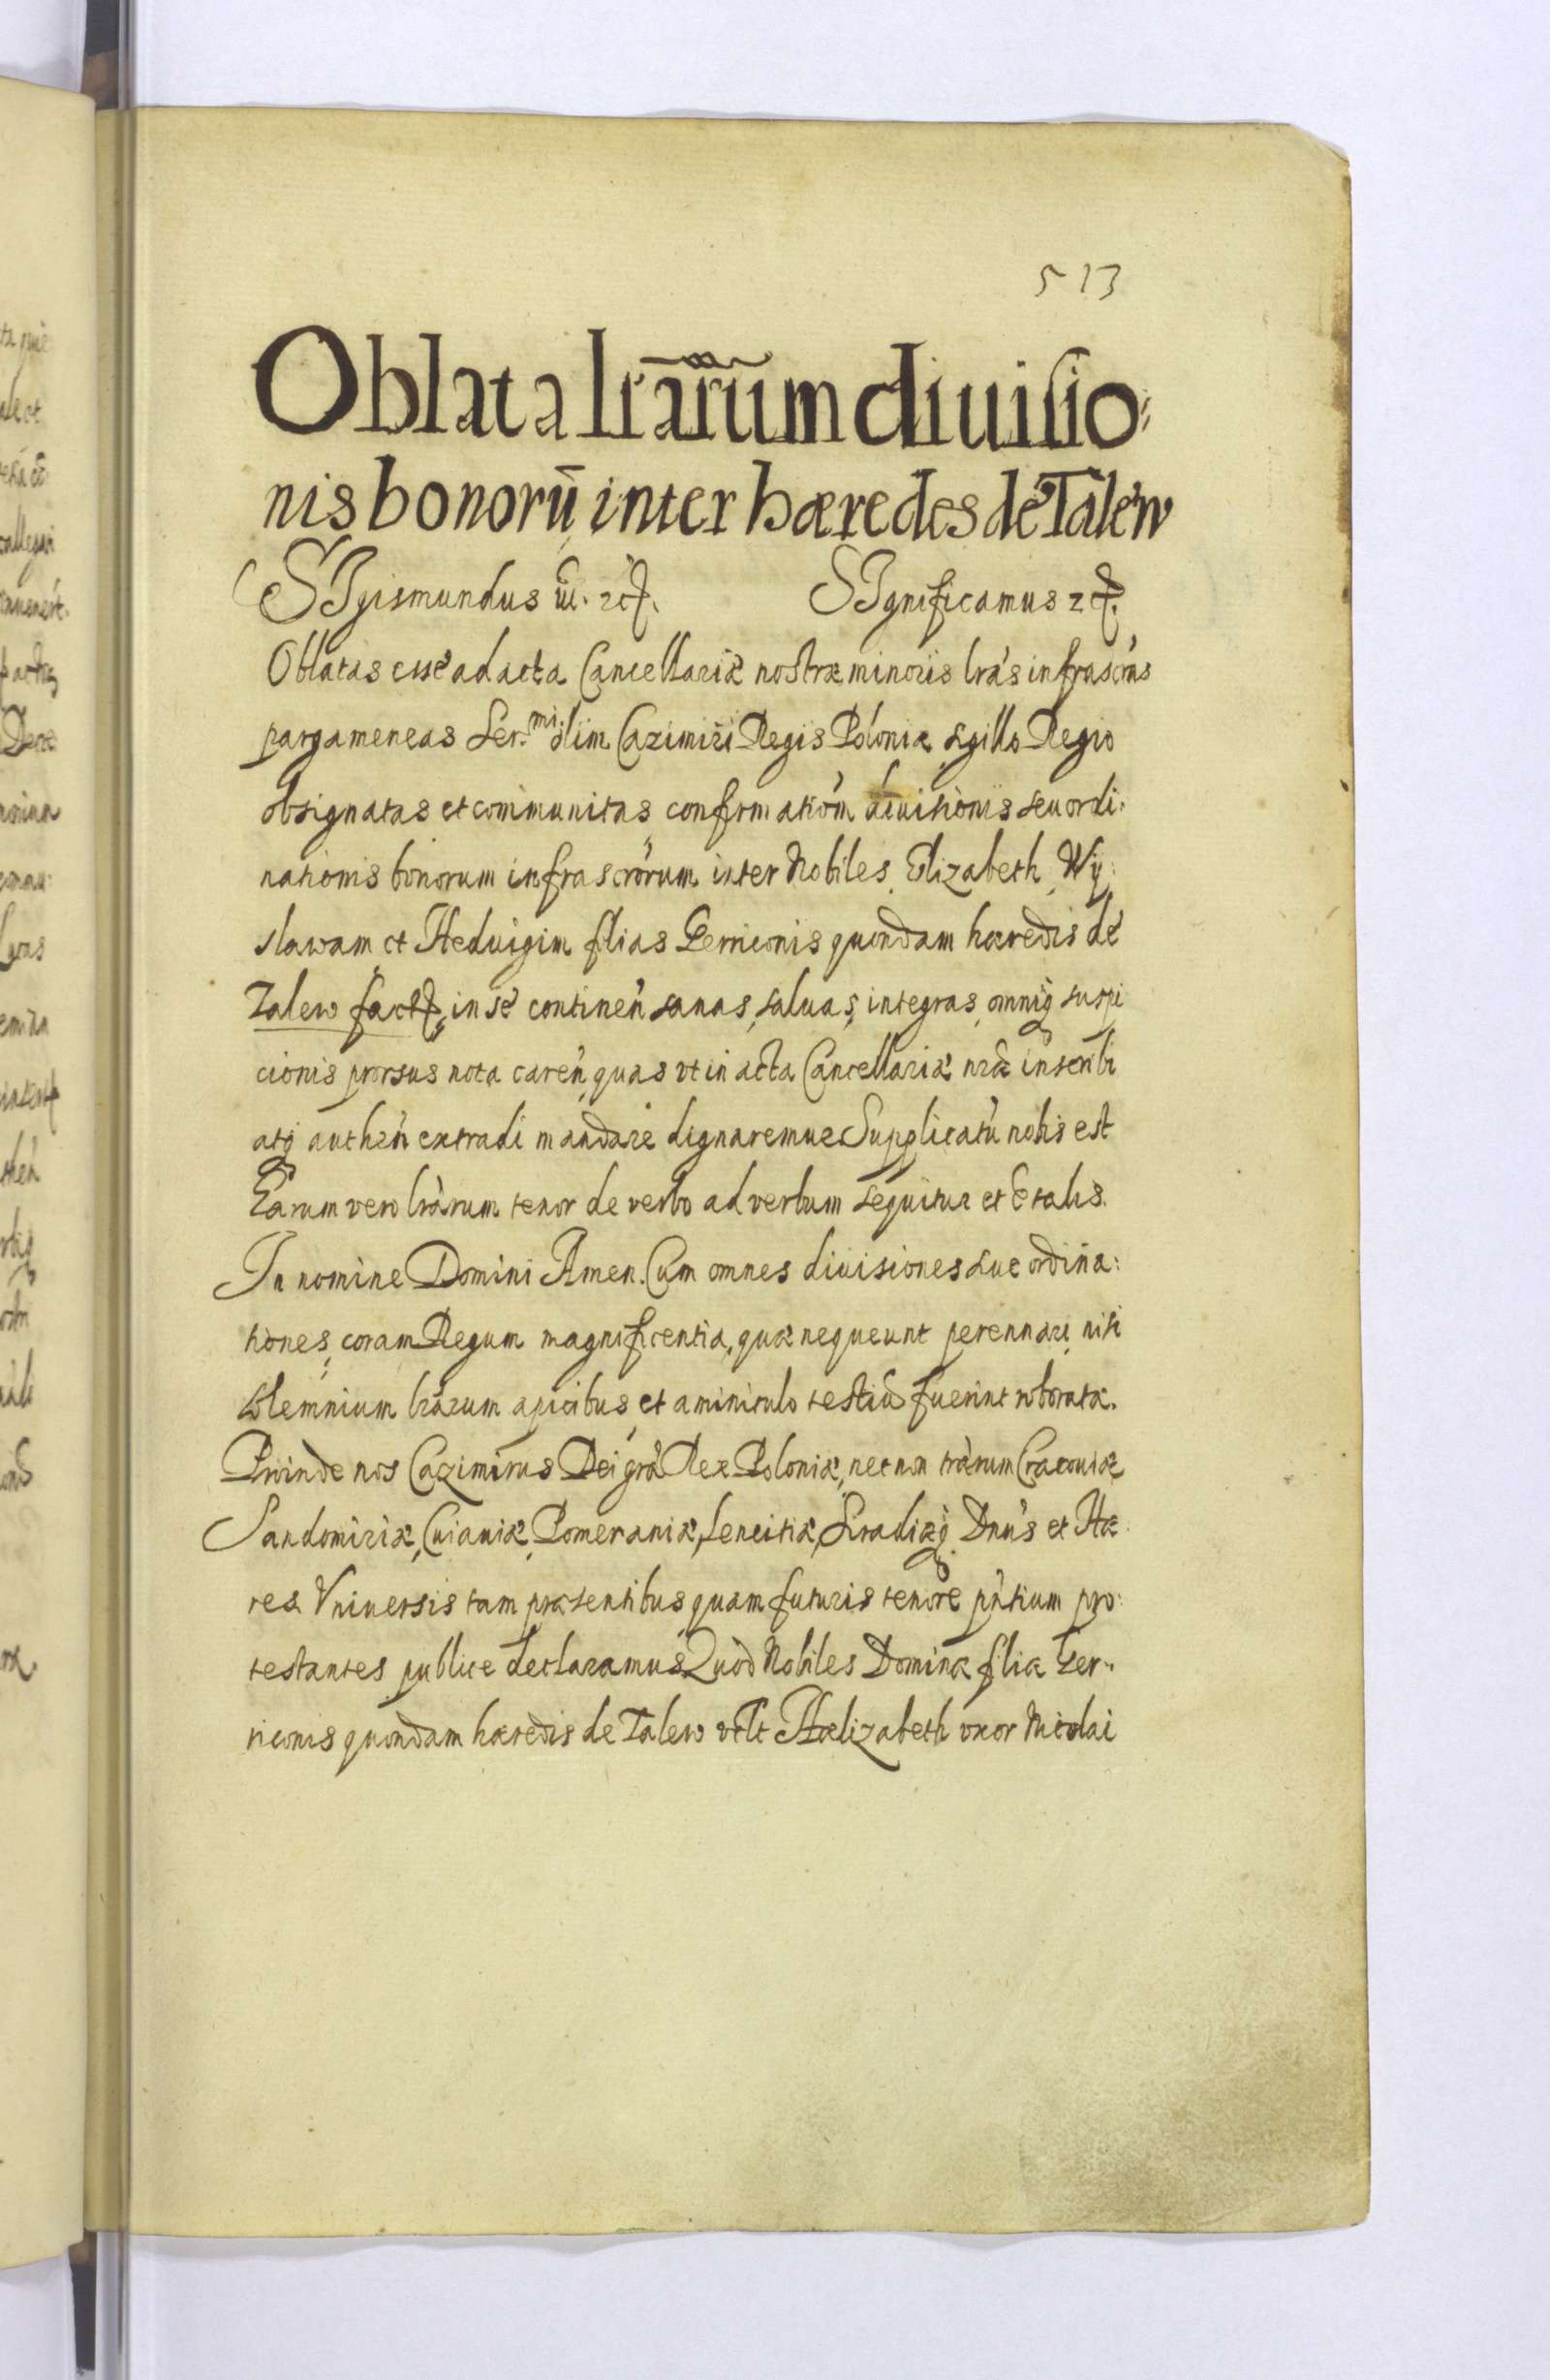 513
Oblata lrārūm diuisio:
nis bonorū inter hæredes de Talew
SIgismundus iii. etc. SIgnificamus etc.
Oblatas esse ad acta Cancellariæ nostræ minoris lras infrascras
pargameneas Ser.mi olim Cazimiri Regis Poloniæ sigillo Regio
obsignatas et communitas confirmationm diuisionis seu ordi:
nationis bonorum infrascrorum inter Nobiles Elizabeth, Wy:
slawam et Heduigim filias Perriconis quondam hæredis de
Talew fact, in se continen sanas, saluas, integras, omniq suspi
cionis prorsus nota caren, quas vt in acta Cancellariæ nræ inscribi
atq authen extradi mandare dignaremur Supplicatū nobis est
Earum vero lrarum tenor de verbo ad verbum sequitur et E talis.
In nomine Domini Amen. Cum omnes diuisiones siue ordina:
tiones, coram Regum magnificentia, quæ nequeunt perennari, nisi
solemnium lrarum apicibus et aminiculo testiū fuerint roborata.
Proinde nos Cazimirus Dei gra Rex Poloniæ, necnon trærum Cracouiæ
Sandomiriæ, Cuiauiæ, Pomeraniæ, Lencitiæ, Siradiæq Dnus et Hæ:
res Vniuersis tam præsentibus quam futuris tenore pntium pro:
testantes publice declaramus Quod Nobiles Dominæ filiæ
riconis quondam hæredis de Talew Hælizabeth vxor Nicolai
ra pue